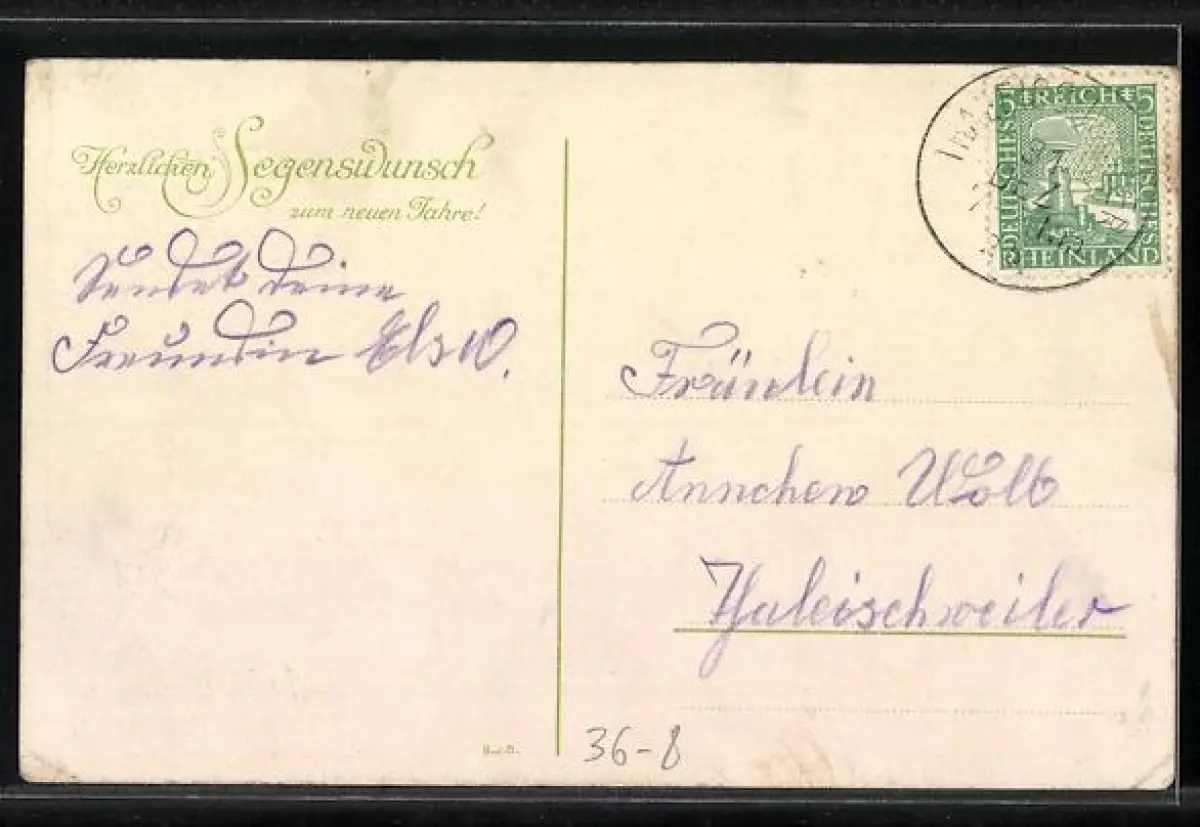 Herzlichen Segenswunsch
zum neuen Jahre!
Sendet deine
Freundin Els W.
DEUTSCHES REICH 5 5
DEUTSCHES
RHEINLAND
Fräulein
Annchen Wolb
Thaleischweiler
B.u.B.
36-8